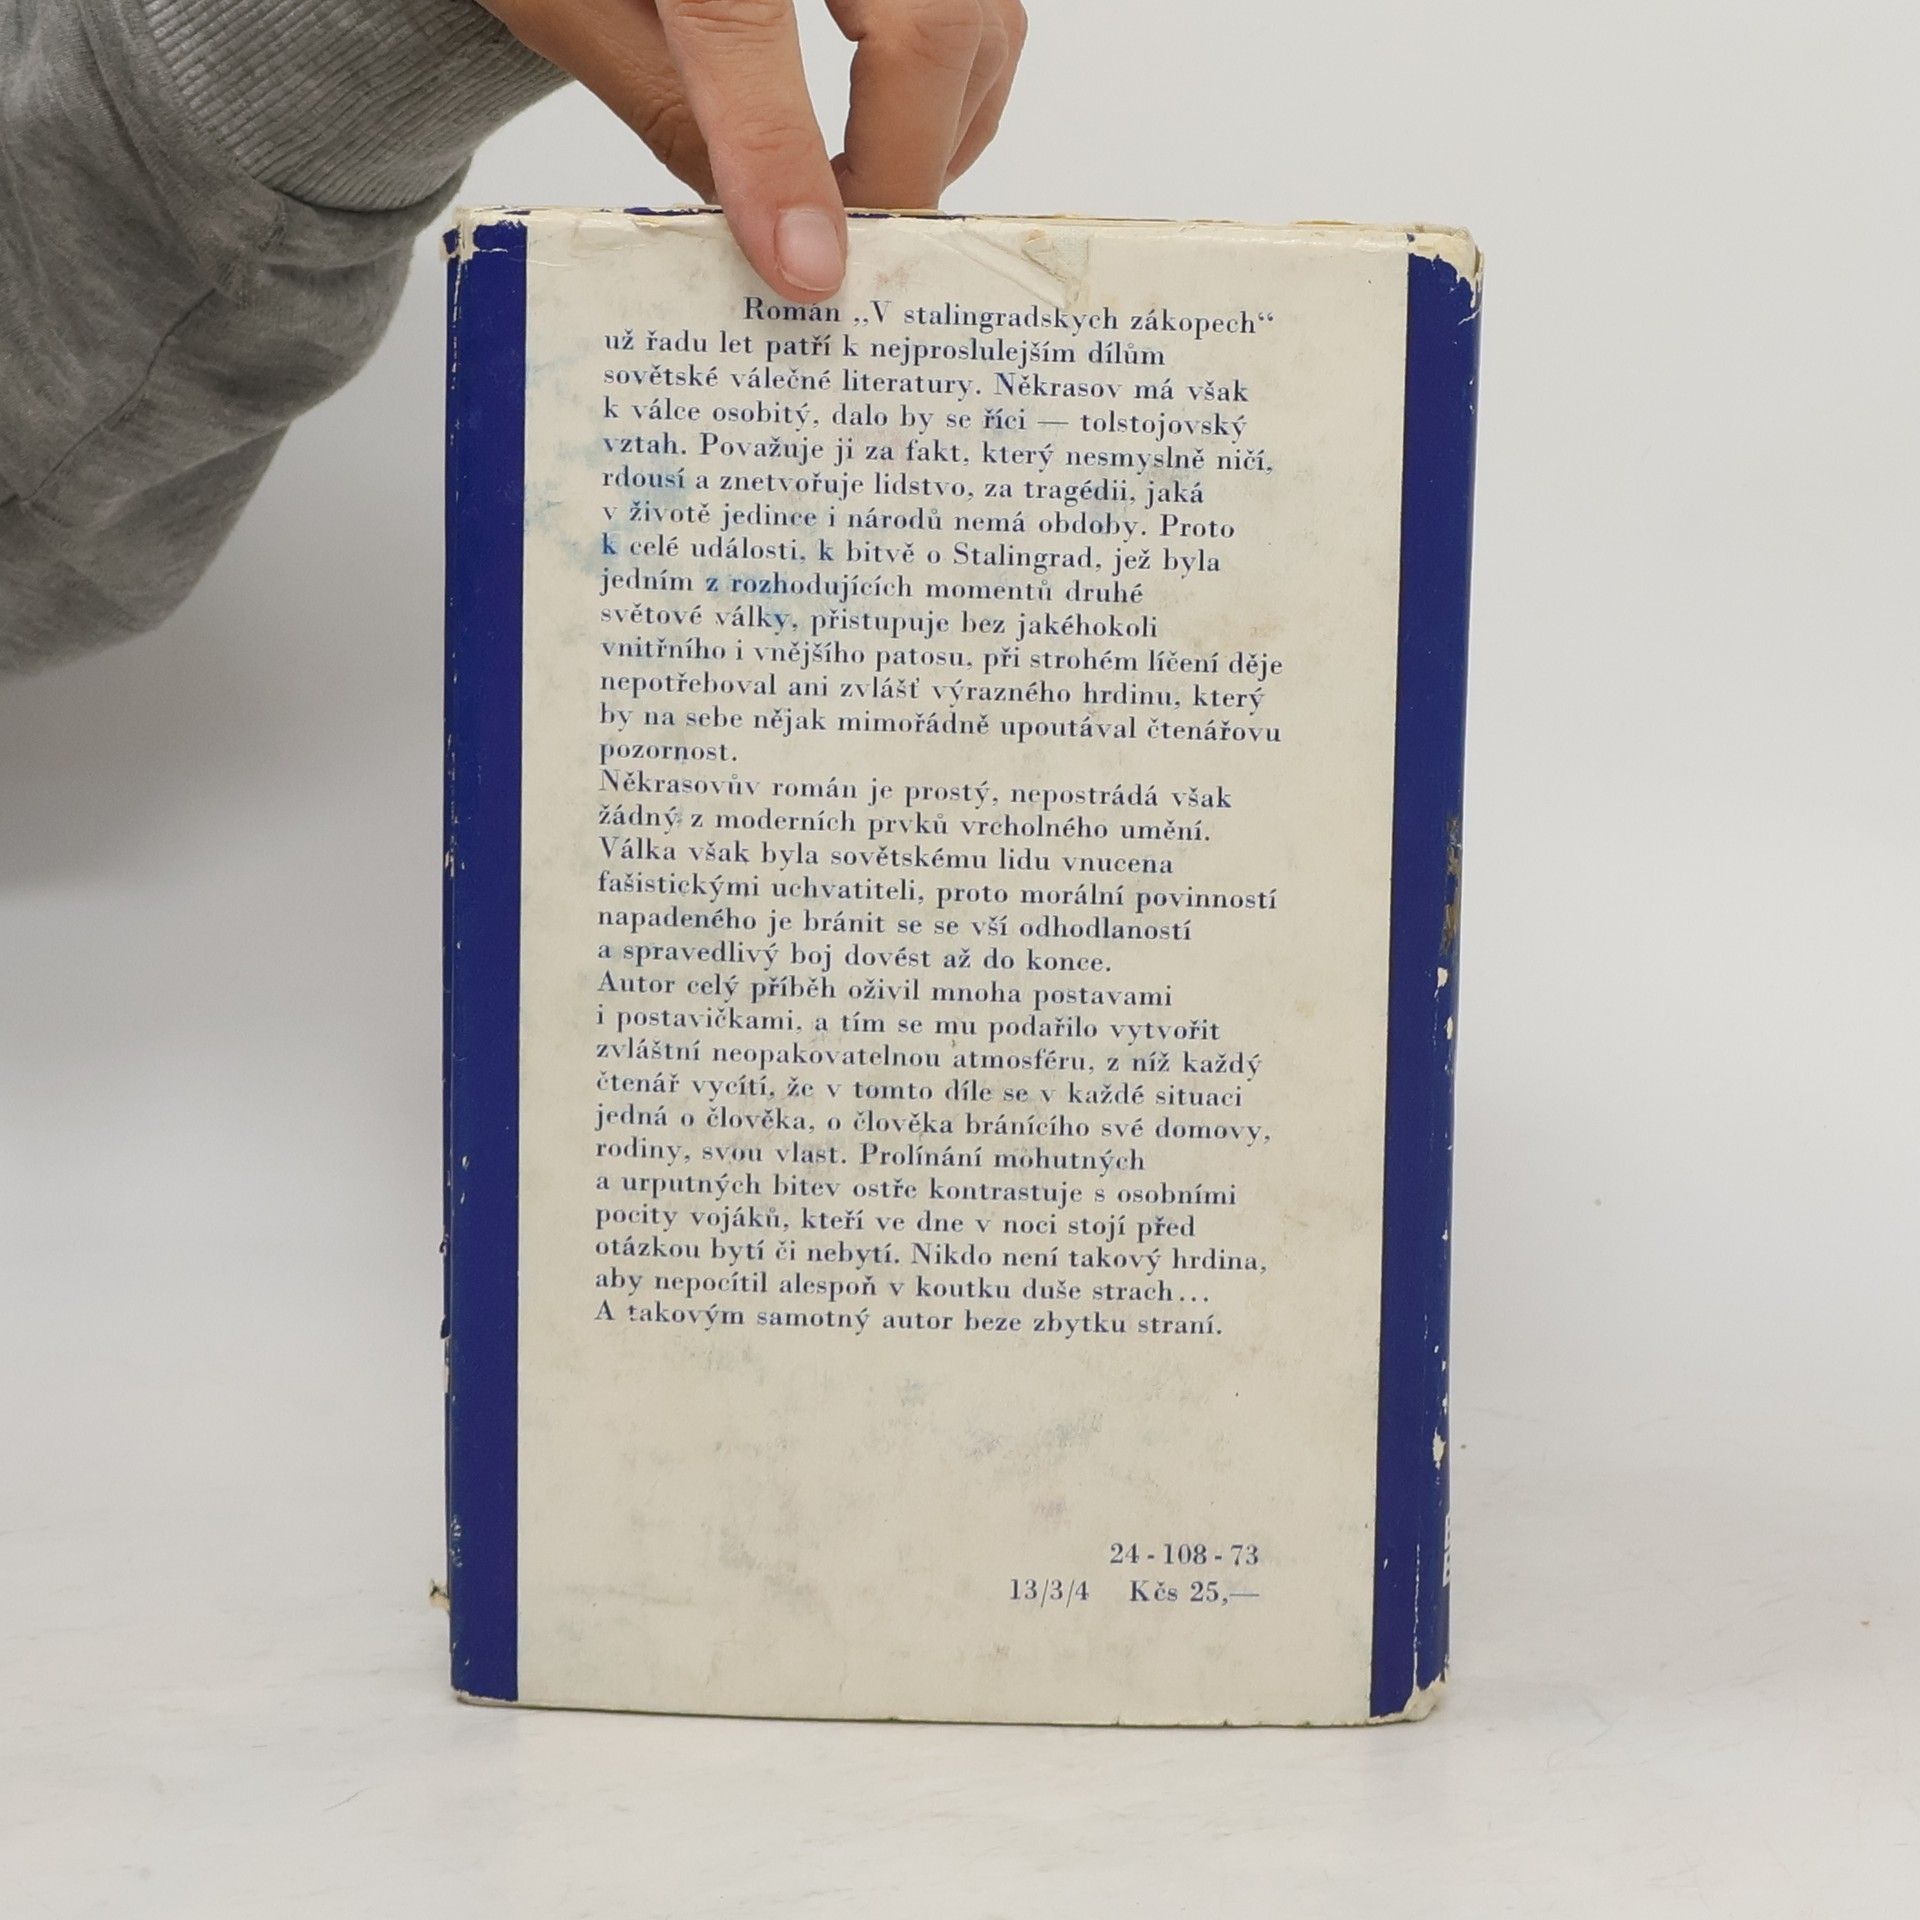 Román „V stalingradskych zákopech“
už řadu let patří k nejproslulejším dílům
sovětské válečné literatury. Někrasov má však
k válce osobitý, dalo by se říci — tolstojovský
vztah. Považuje ji za fakt, který nesmyslně ničí,
rdousí a znetvořuje lidstvo, za tragédii, jaká
v životě jedince i národů nemá obdoby. Proto
k celé události, k bitvě o Stalingrad, jež byla
jedním z rozhodujících momentů druhé
světové války, přistupuje bez jakéhokoli
vnitřního i vnějšího patosu, při strohém líčení děje
nepotřeboval ani zvlášť výrazného hrdinu, který
by na sebe nějak mimořádně upoutával čtenářovu
pozornost.
Někrasovův román je prostý, nepostrádá však
žádný z moderních prvků vrcholného umění.
Válka však byla sovětskému lidu vnucena
fašistickými uchvatiteli, proto morální povinností
napadeného je bránit se se vší odhodlaností
a spravedlivý boj dovést až do konce.
Autor celý příběh oživil mnoha postavami
i postavičkami, a tím se mu podařilo vytvořit
zvláštní neopakovatelnou atmosféru, z níž každý
čtenář vycítí, že v tomto díle se v každé situaci
jedná o člověka, o člověka bránícího své domovy,
rodiny, svou vlast. Prolínání mohutných
a urputných bitev ostře kontrastuje s osobními
pocity vojáků, kteří ve dne v noci stojí před
otázkou bytí či nebytí. Nikdo není takový hrdina,
aby nepocítil alespoň v koutku duše strach...
A takovým samotný autor beze zbytku straní.
24 - 108 - 73
13/3/4 Kčs 25,—